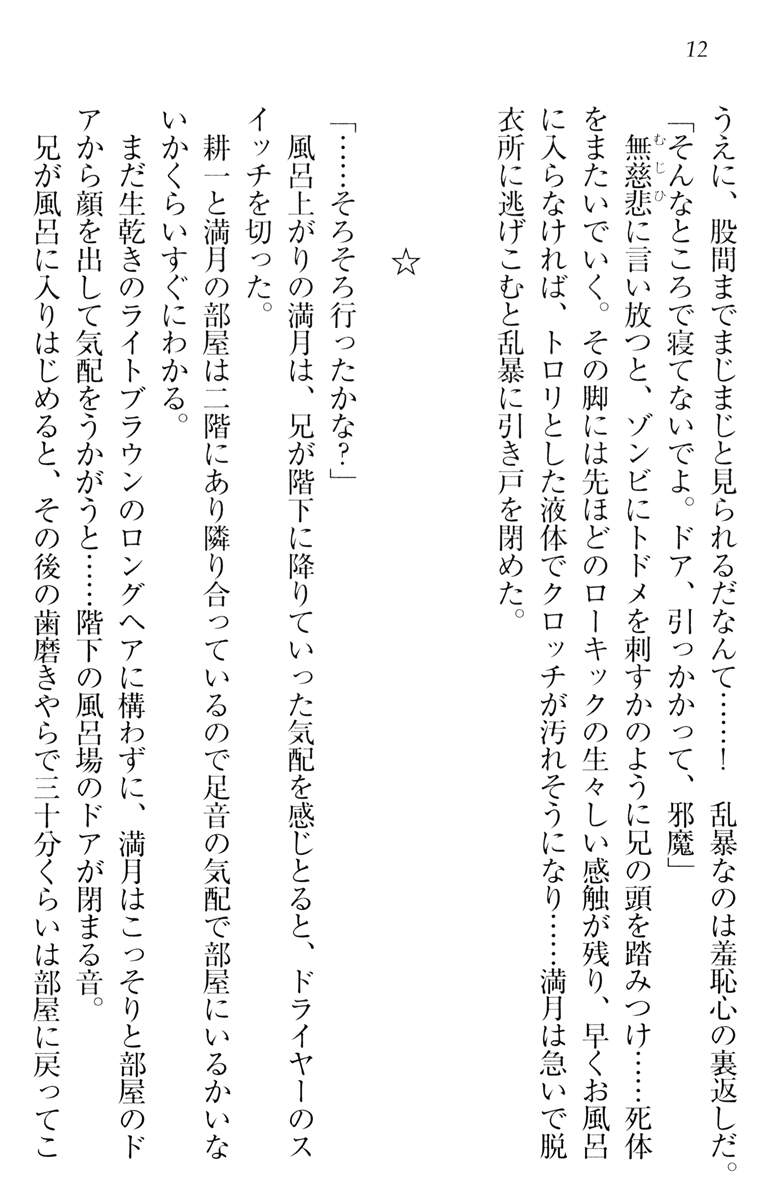 12
うえに、股間までまじまじと見られるだなんて……！　乱暴なのは羞恥心の裏返しだ。
「そんなところで寝てないでよ。ドア、引っかかって、邪魔」
無慈悲に言い放つと、ゾンビにトドメを刺すかのように兄の頭を踏みつけ……死体
をまたいでいく。その脚には先ほどのローキックの生々しい感触が残り、早くお風呂
に入らなければ、トロリとした液体でクロッチが汚れそうになり……満月は急いで脱
衣所に逃げこむと乱暴に引き戸を閉めた。
☆
「……そろそろ行ったかな？」
風呂上がりの満月は、兄が階下に降りていった気配を感じとると、ドライヤーのス
イッチを切った。
耕一と満月の部屋は二階にあり隣り合っているので足音の気配で部屋にいるかいな
いかくらいすぐにわかる。
まだ生乾きのライトブラウンのロングヘアに構わずに、満月はこっそりと部屋のド
アから顔を出して気配をうかがうと……階下の風呂場のドアが閉まる音。
兄が風呂に入りはじめると、その後の歯磨きやらで三十分くらいは部屋に戻ってこ